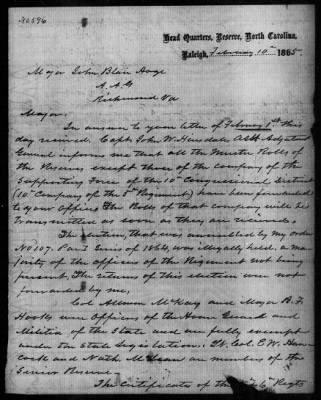 Head Quarters, Reserve, North Carolina,
Raleigh, February 10th 1865
Major John Blair Hoge
A.A.G
Richmond Va
Major:
In answer to your letter of February 1st this
day received. Capt John W. Hinsdale Asst Adjutant
General informs me that all the Muster Rolls of
the Reserves except those of the company of the
Supporting Force of the 10th Congressional District
(10th Company of the Regiment) have been forwarded
to your Office. The Rolls of that company will be
transmitted as soon as they are received.
The election, that was annulled by my order
No 107. Par 1 Series of 1864, was illegally held, a ma-
jority of the officers of the Regiment not being
present. The returns of this election were not
forwarded by me.
Col Allmon McKay and Major B. F.
Hooks were Officers of the Home Guard and
Militia of the State and are fully exempt
under the State Legislation. Lt. Col. E. W. Han-
cock and Nath McLean are members of the
Senior Reserve.
The Certificates of the Regts